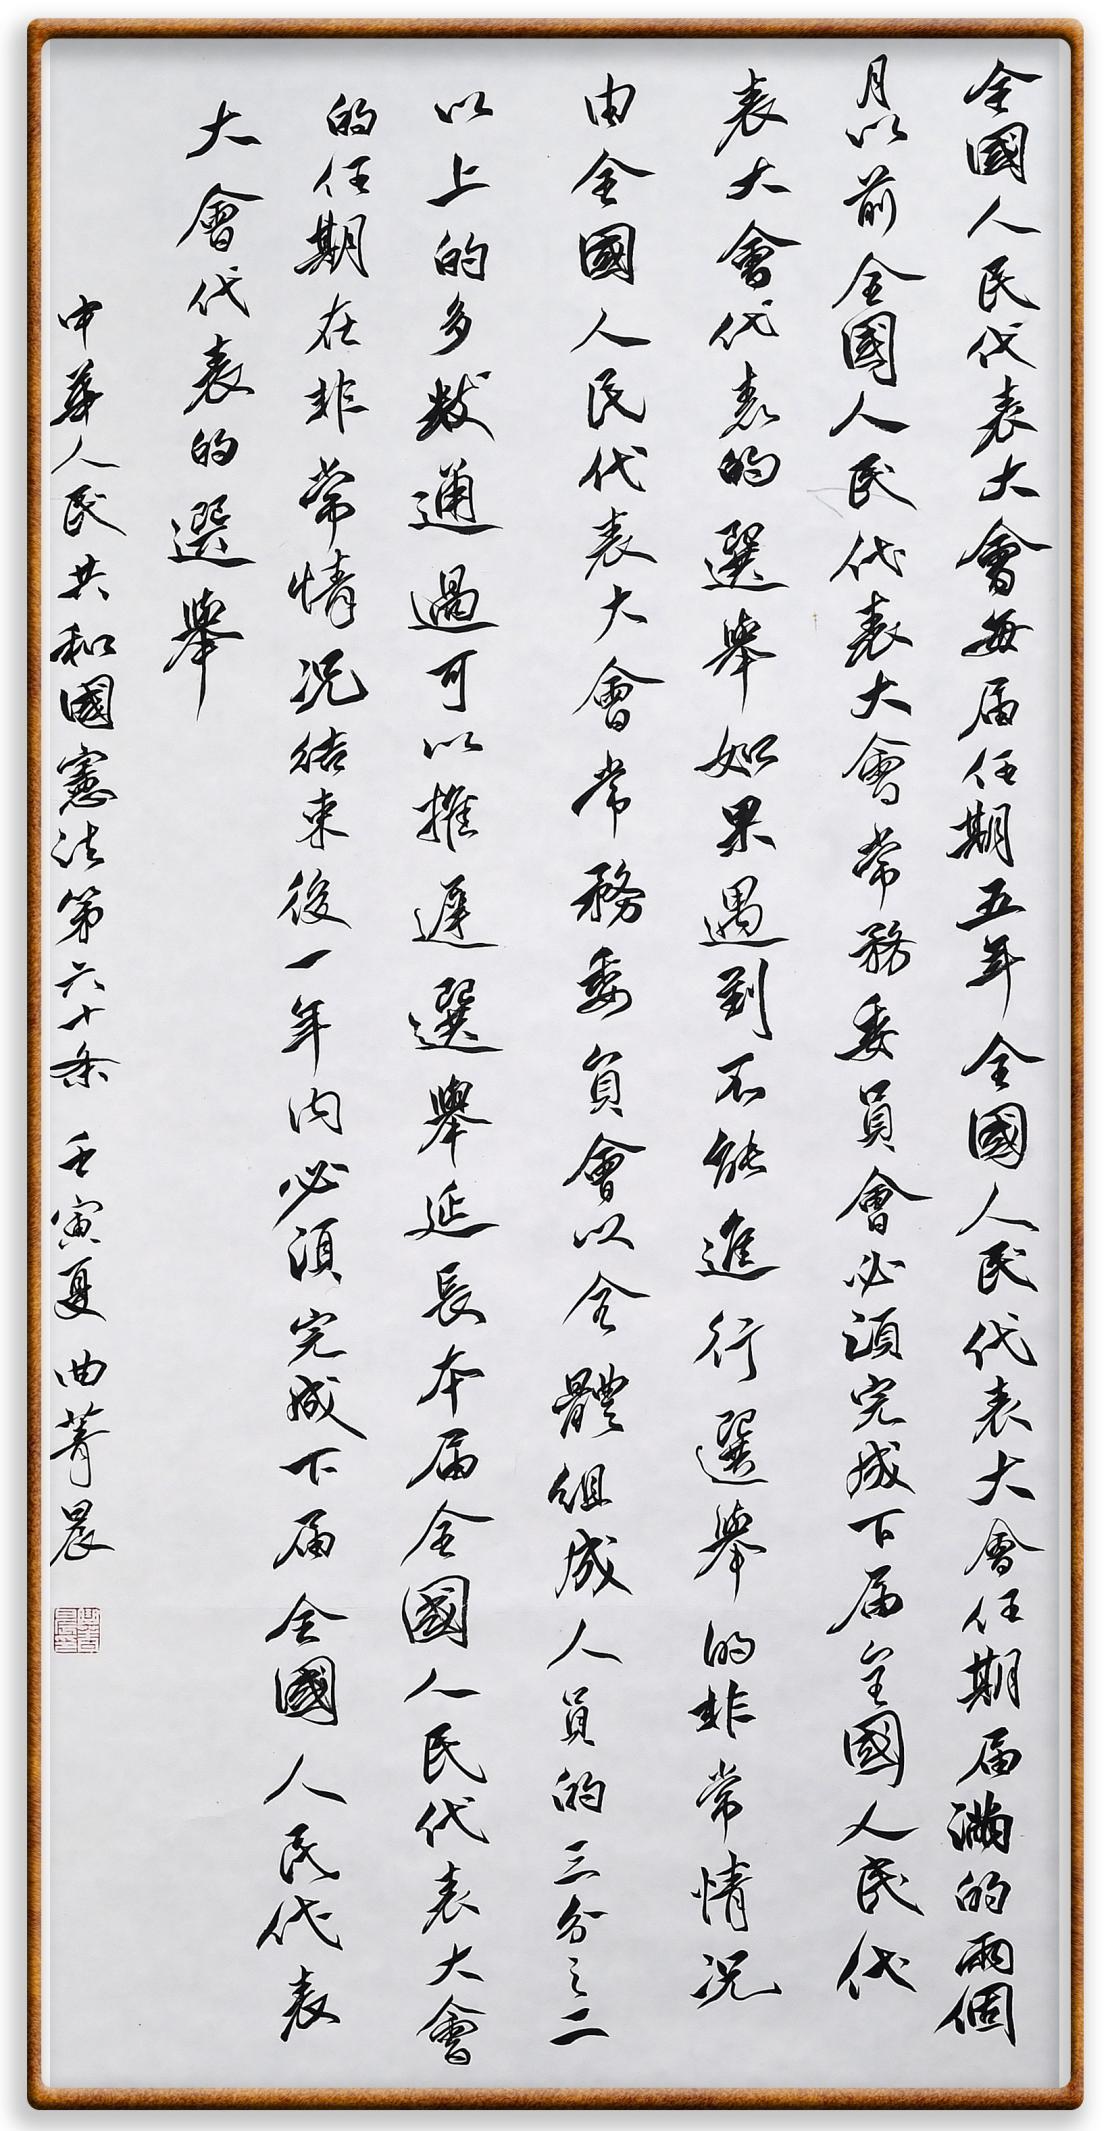 全國人民代表大會每届任期五年全國人民代表大會任期届滿的兩個
月以前全國人民代表大會常務委員會必須完成下届全國人民代
表大會代表的選舉如果遇到不能進行選舉的非常情况
由全國人民代表大會常務委員會以全體組成人員的三分之二
以上的多數通過可以推遲選舉延長本届全國人民代表大會
的任期在非常情况結束後一年内必須完成下届全國人民代表
大會代表的選舉
中華人民共和國憲法第六十条 壬寅夏 曲菁晨